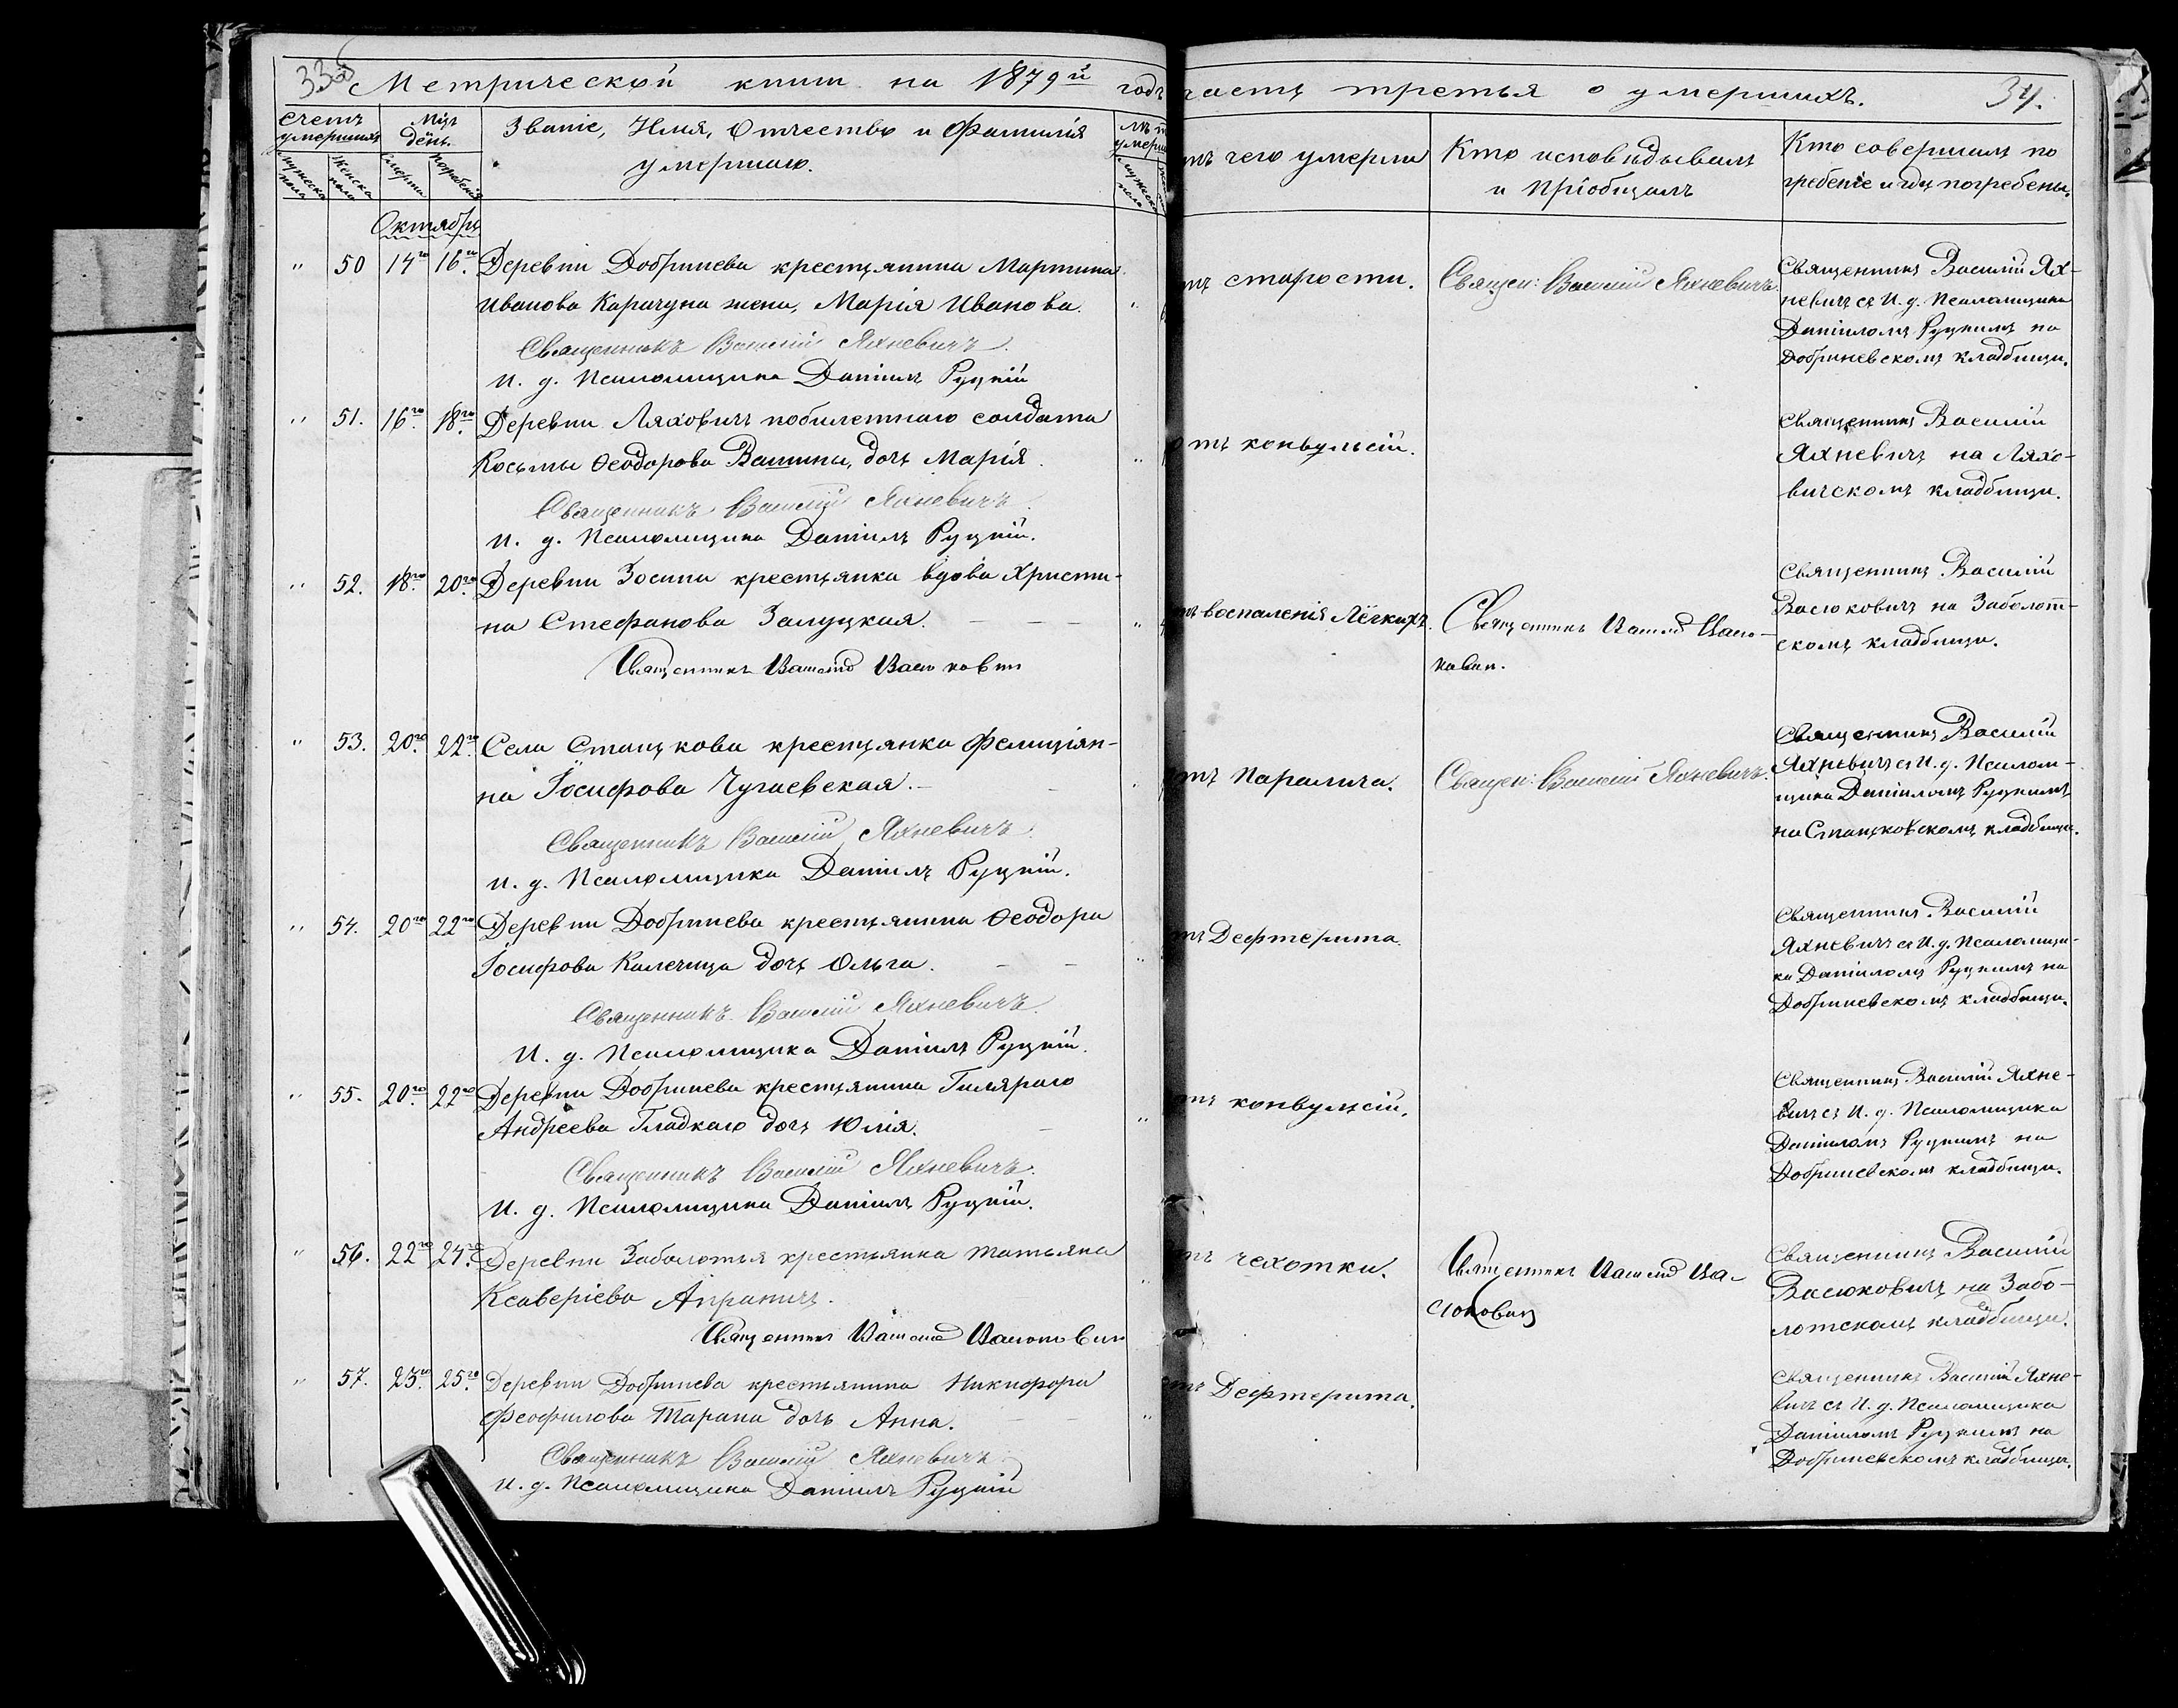 Метрической книги на 1879й годъ часть третья о умершихъ.
34.
Счетъ умершихъ
Мужеска пола
Женска пола
Мцъ день.
Смерти
Погребенія
Званіе, Имя, Отчество и Фамилія
умершаго.
отъ чего умерли
Кто исповѣдывалъ
и пріобщалъ
Кто совершалъ по
гребеніе и гдѣ погребены.
Октябрь
" 50 14го 16го Деревни Добринева крестьянина Мартина
Иванова Карачуна жена, Марія Иванова.
Священникъ Василій Яхневичъ.
И. д. Псаломщика Даніилъ Руцкій
отъ старости.
Священ: Василій Яхневичъ.
Священникъ Василій Ях-
невичъ съ И. д. Псаломщика
Даніиломъ Руцкимъ на
Добриневскомъ кладбищи.
" 51. 16го 18го Деревни Ляховичъ побилетнаго солдата
Косьмы Ѳеодорова дочь Марія.
Священникъ Василій Яхневичъ.
И. д. Псаломщика Даніилъ Руцкій.
отъ конвульсій.
Священникъ Василій
Яхневичъ на Ляхо-
вичскомъ кладбищи.
" 52. 18го 20го Деревни Зосина крестьянка вдова Христи-
на Стефанова Залуцкая.
Священникъ Василій Васюковичъ
отъ воспаленія Лёгкихъ.
Священникъ Василій Васю-
ковичъ.
Священникъ Василій
Васюковичъ на Заболот-
скомъ кладбищи.
" 53. 20го 22го Села Станькова крестьянка Фелиціян-
на Іосифова Чугаевская.
Священникъ Василій Яхневичъ.
И. д. Псаломщика Даніилъ Руцкій.
отъ Паралича.
Священ: Василій Яхневичъ.
Священникъ Василій
Яхневичъ съ И. д. Псалом-
щика Даніиломъ Руцкимъ
на Станьковскомъ кладбищи.
" 54. 20го 22го Деревни Добринева крестьянина Ѳеодора
Іосифова Калечица дочь Ольга.
Священникъ Василій Яхневичъ.
И. д. Псаломщика Даніилъ Руцкій.
отъ Дефтерита.
Священникъ Василій
Яхневичъ съ И. д. Псаломщи-
ка Даніиломъ Руцкимъ на
Добриневскомъ кладбищи.
" 55. 20го 22го Деревни Добринева крестьянина Гиляраго
Андреева Гладкаго дочь Юлія.
Священникъ Василій Яхневичъ.
И. д. Псаломщика Даніилъ Руцкій.
отъ конвульсій.
Священникъ Василій Яхне-
вичъ съ И. д. Псаломщика
Даніиломъ Руцкимъ на
Добриневскомъ кладбищи.
" 56. 22го 24го Деревни Заболотья крестьянка Татьяна
Ксаверіева
Священникъ Василій Васюковичъ
отъ чехотки.
Священникъ Василій Ва-
сюковичъ
Священникъ Василій
Васюковичъ на Забо-
лотскомъ кладбищи.
" 57. 23го 25го Деревни Добринева крестьянина Никифора
Феофилова Тарана дочь Анна.
Священникъ Василій Яхневичъ
И. д. Псаломщика Даніилъ Руцкій
отъ Дефтерита.
Священникъ Василій Яхне-
вичъ съ И. д. Псаломщика
Даніиломъ Руцкимъ на
Добриневскомъ кладбищи.